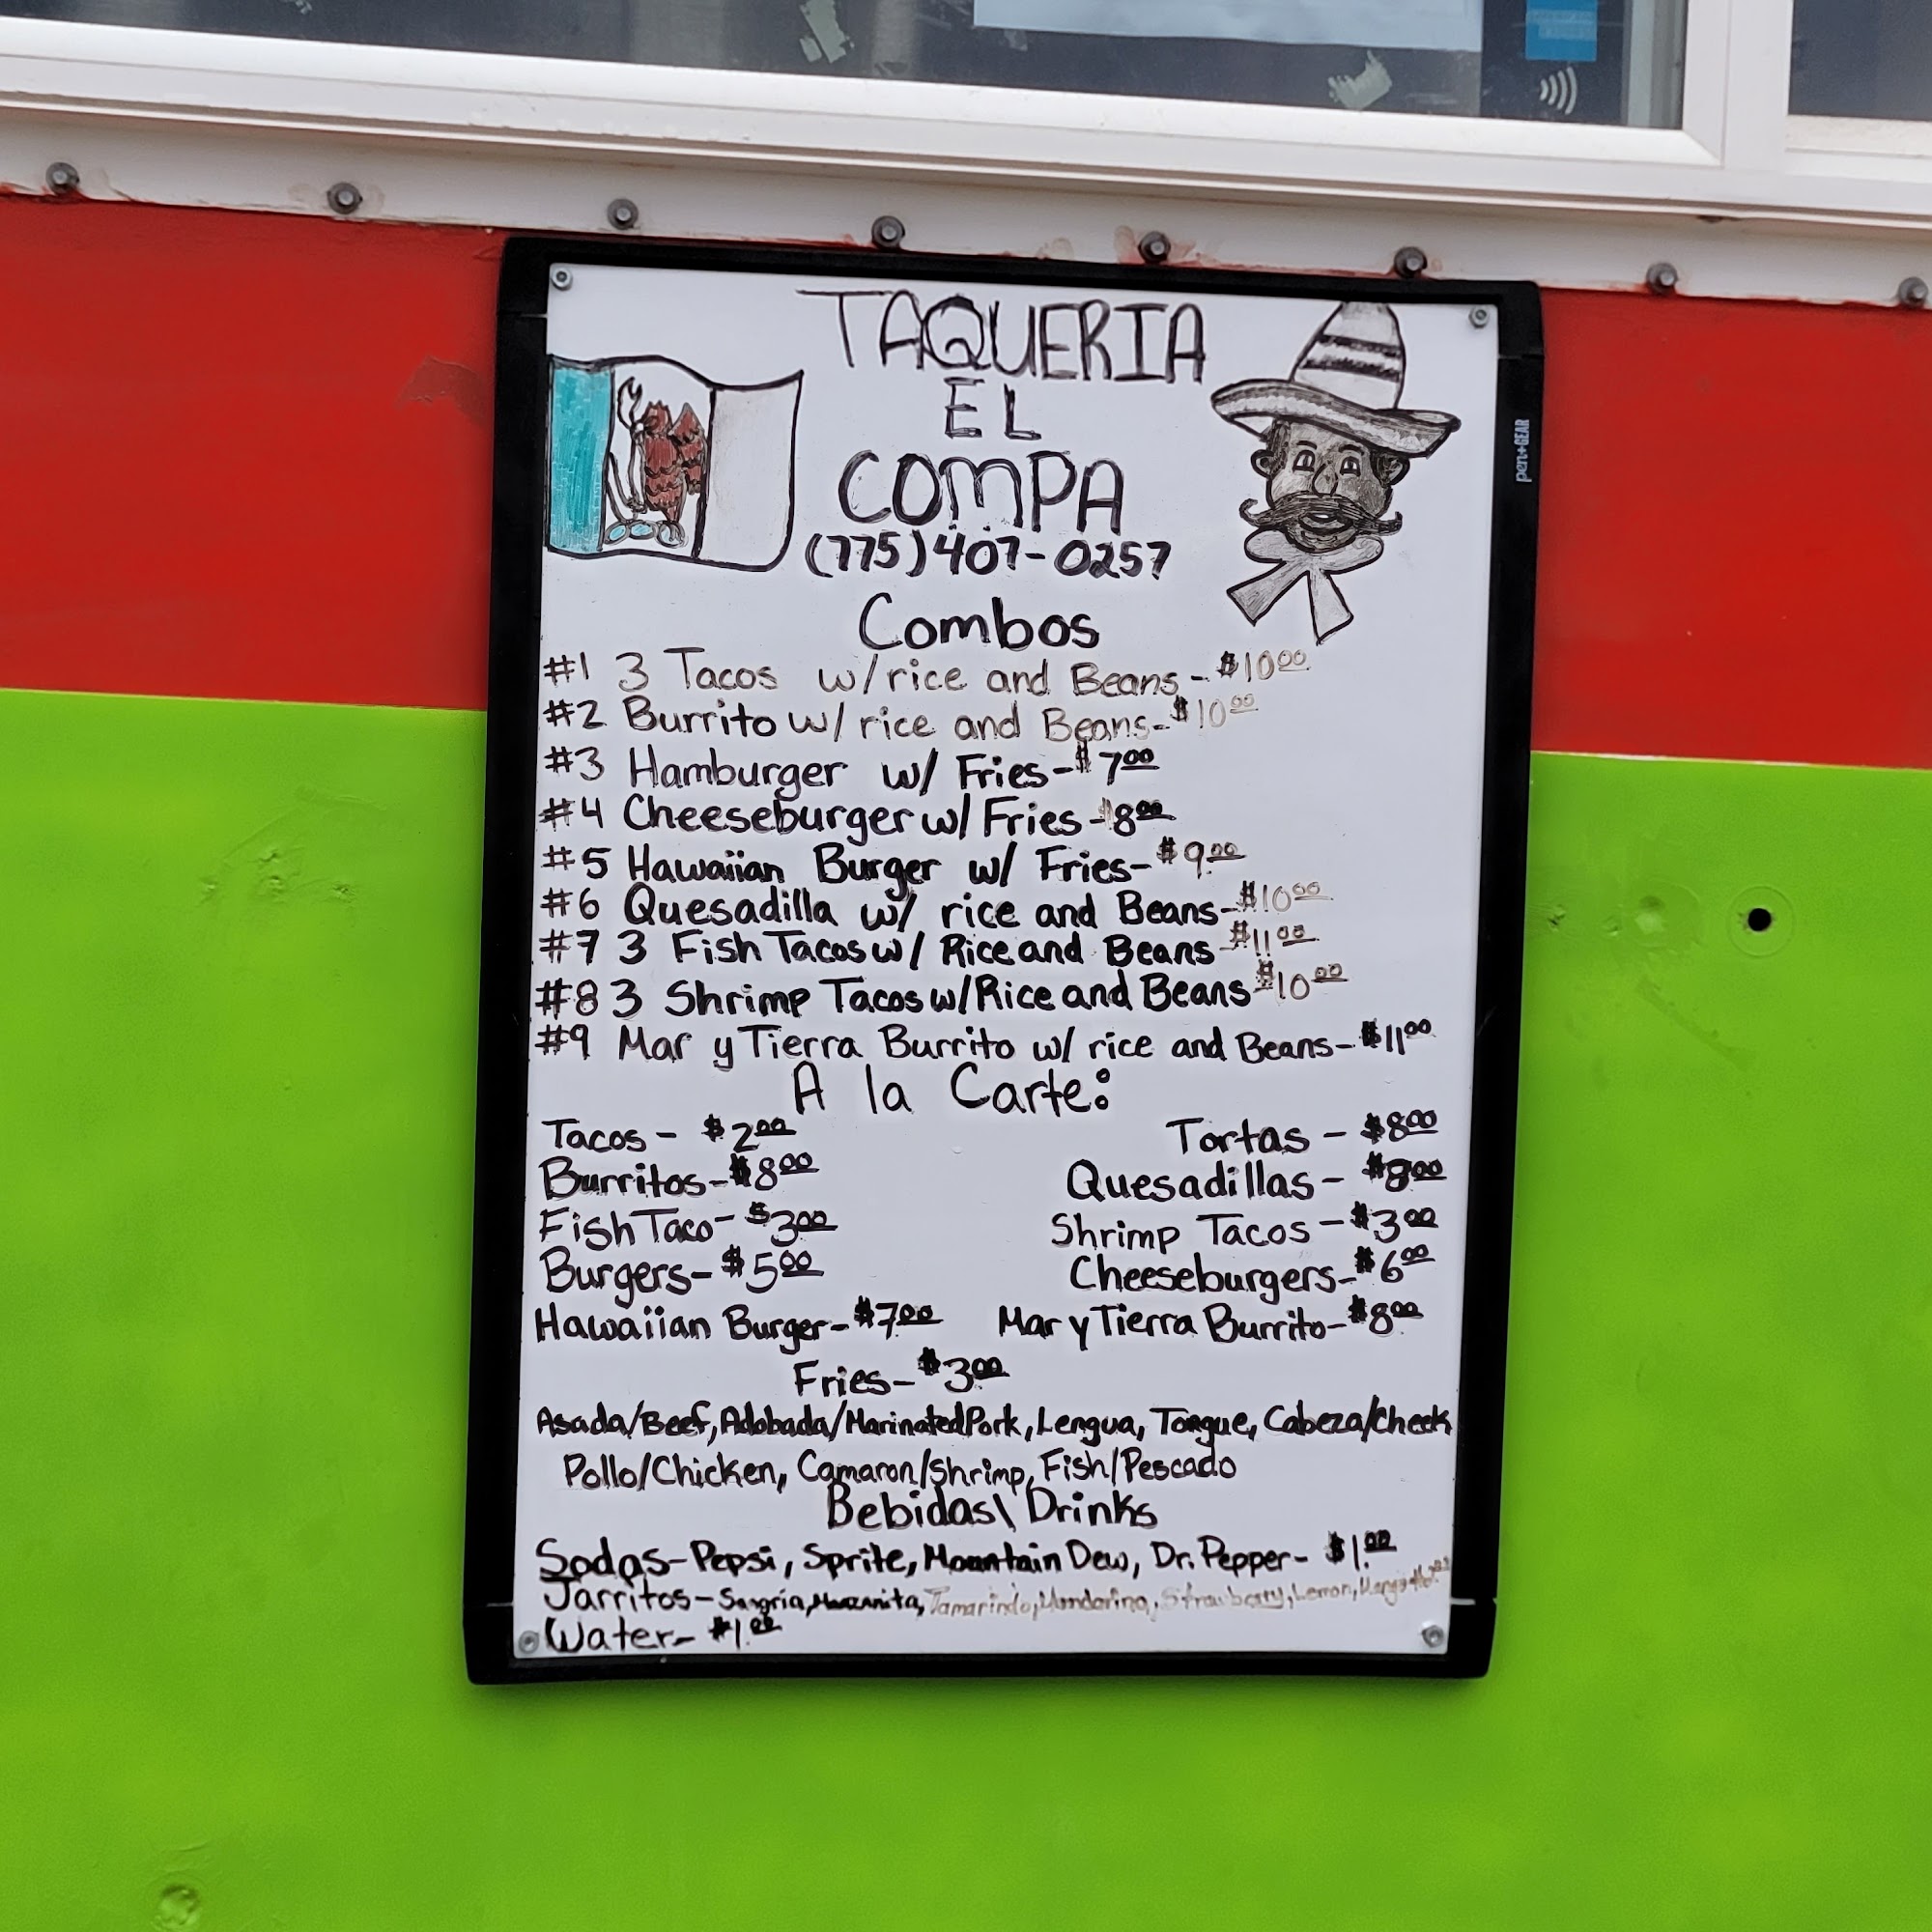 pen+GEAR
TAQUERIA
EL
COMPA
(775)407-0257
Combos
#1 3 Tacos w/rice and Beans-$10.00
#2 Burrito w/ rice and Beans-$10.00
#3 Hamburger w/ Fries-$7.00
#4 Cheeseburger w/ Fries-$8.00
#5 Hawaiian Burger w/ Fries-$9.00
#6 Quesadilla w/ rice and Beans-$10.00
#7 3 Fish Tacos w/ Rice and Beans-$11.00
#8 3 Shrimp Tacos w/Rice and Beans-$10.00
#9 Mar y Tierra Burrito w/ rice and Beans-$11.00
A la Carte:
Tacos - $2.00 Tortas - $8.00
Burritos-$8.00 Quesadillas-
Fish Taco-$3.00 Shrimp Tacos-$3.00
Burgers-$5.00 Cheeseburgers-$6.00
Hawaiian Burger-$7.00 Mar y Tierra Burrito-$8.00
Fries-$3.00
Asada/Beef, Adobada/Marinated Pork, Lengua, Tongue, Cabeza/Cheek
Pollo/Chicken, Camaron/Shrimp, Fish/Pescado
Bebidas\Drinks
Sodas-Pepsi, Sprite, Mountain Dew, Dr. Pepper- $1.00
Jarritos-Sangria, Manzanita, Tamarindo, Mandarina, Strawberry, Lemon,
Water- $1.00